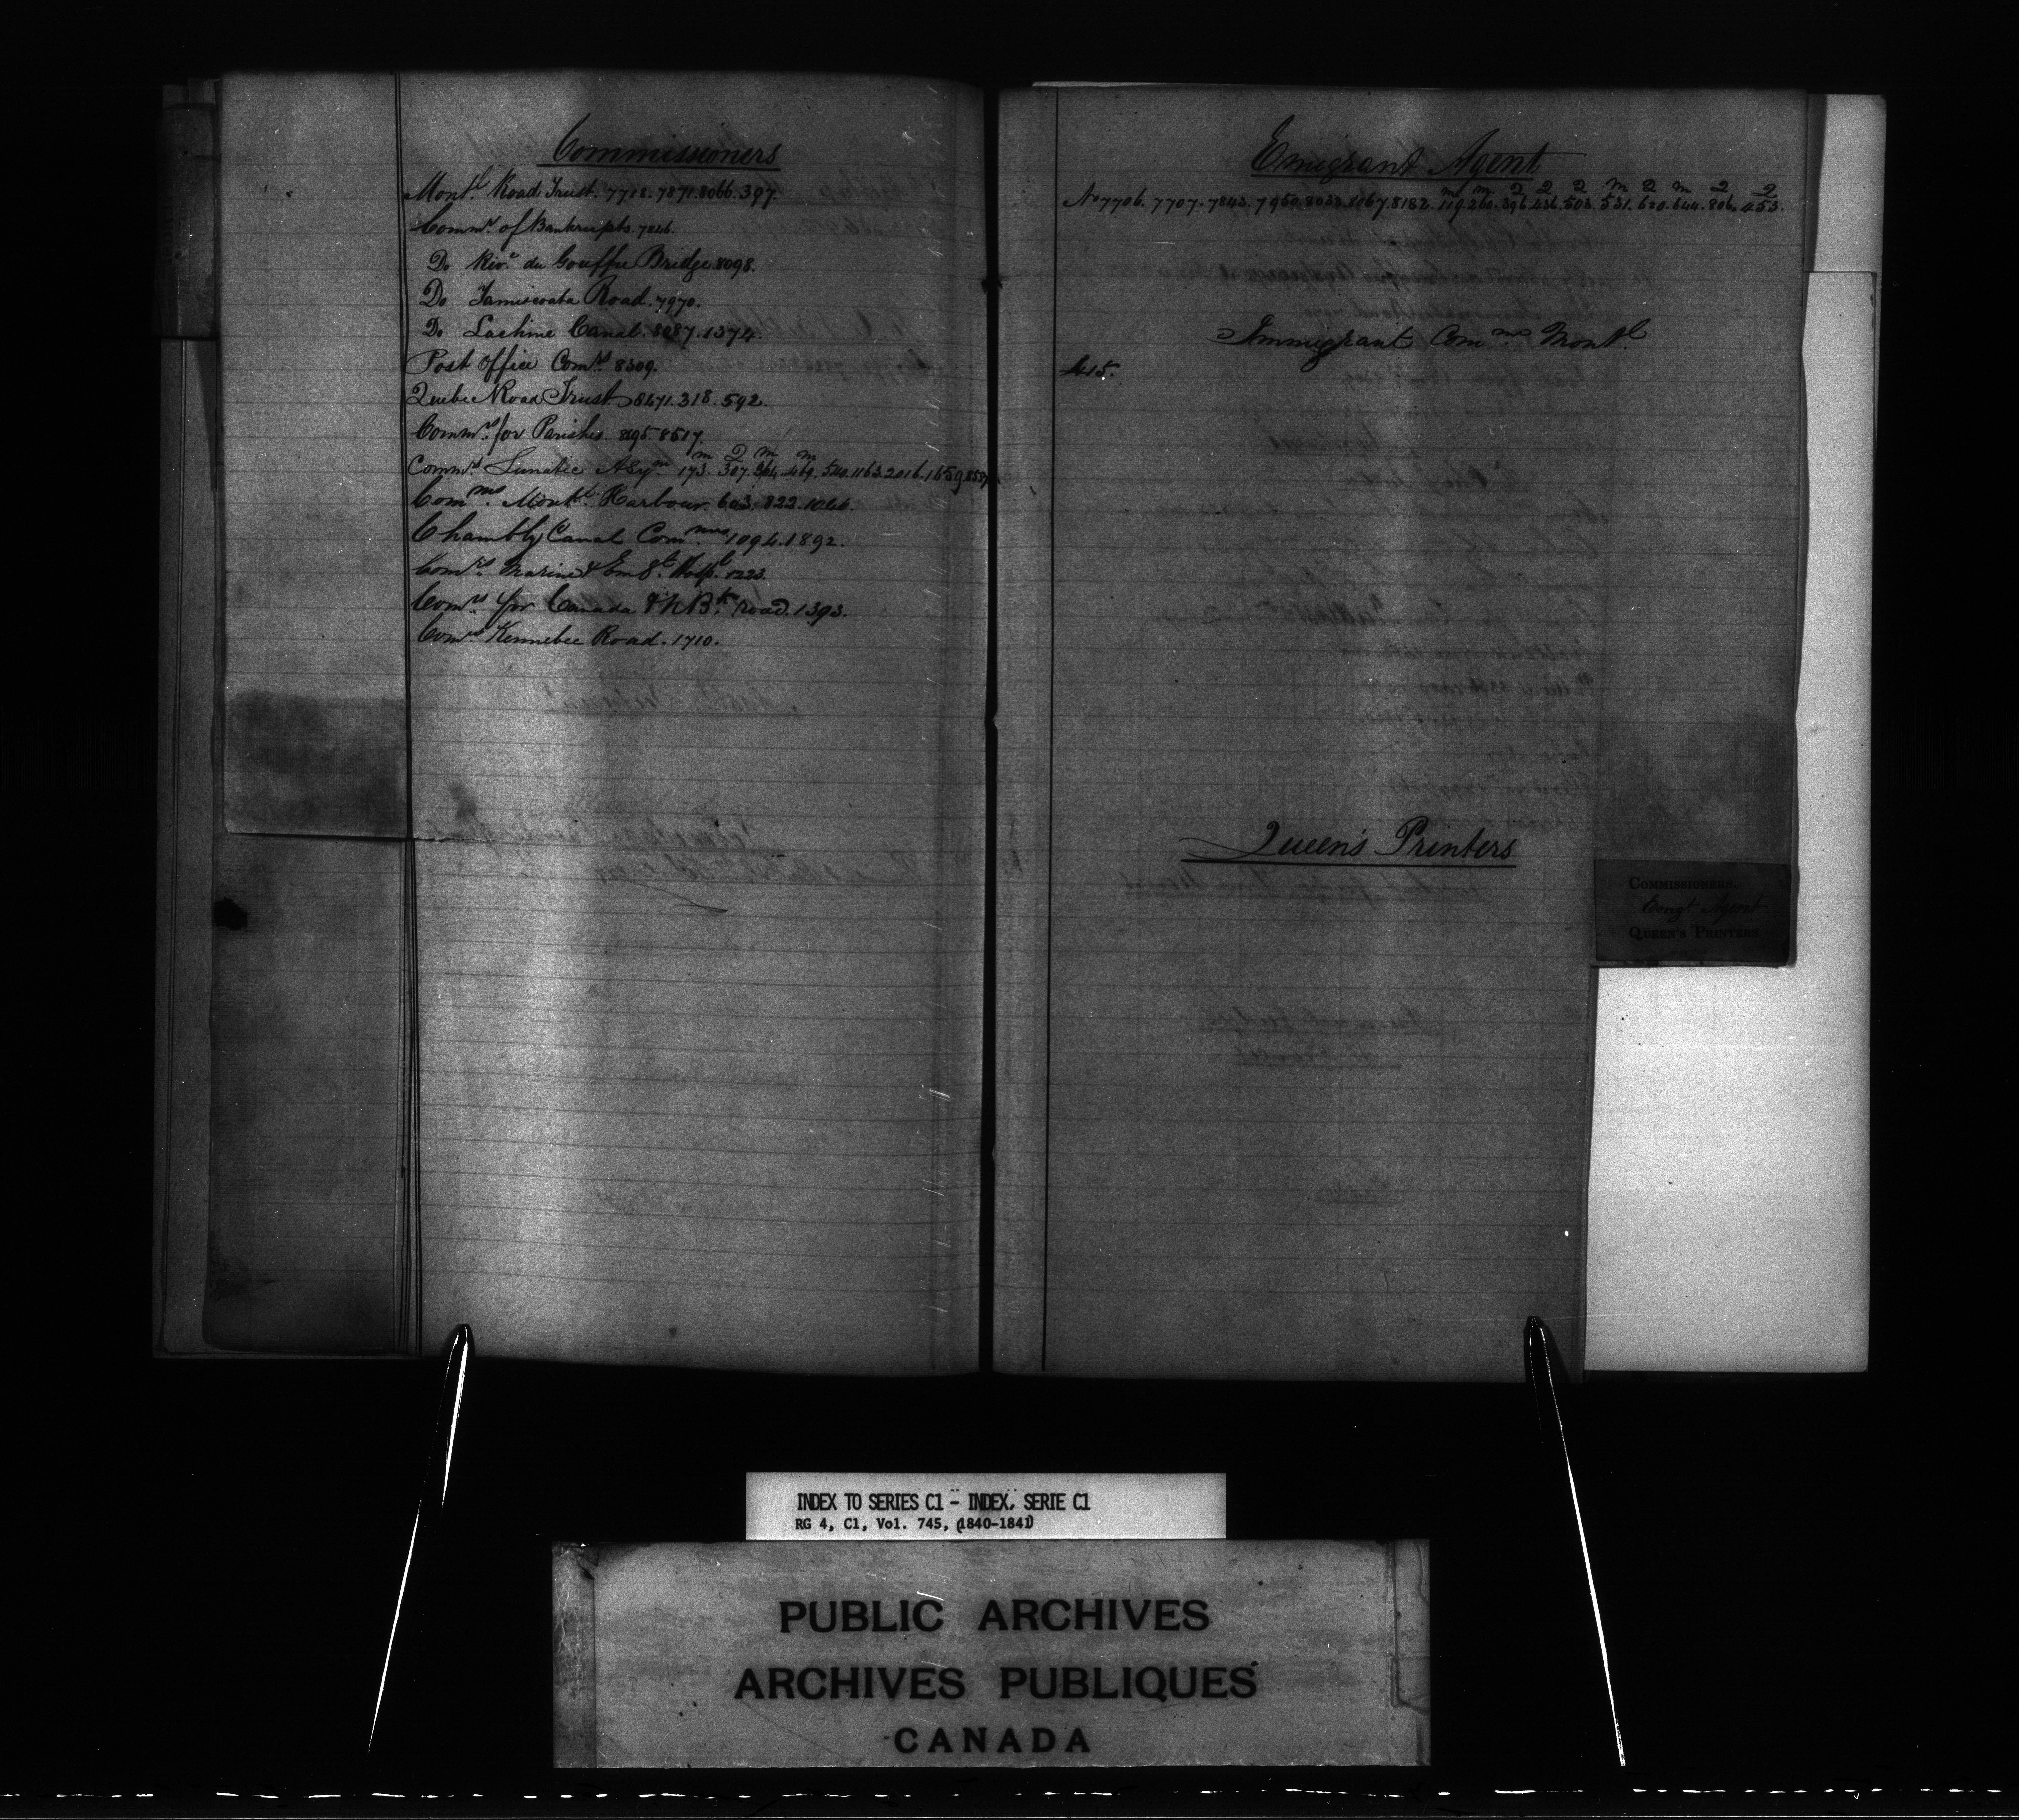 Commissioners
Montl. Road Trust. 7718. 7871. 8066. 397.
Commrs of Bankrupts. 7846.
Do Rivre du Gouffre Bridge. 8098.
Do Tamiscoata Road. 7970.
Do Lachine Canal. 8087. 1374.
Post Office Comrs 8309.
Quebec Road Trust. 8471. 318. 592.
Commrs for Parishes 8517.
Commrs Lunatic Asym 173. 307. 364. 469. 540. 1163. 2016. 1659
Commrs. Montl. Harbour. 603. 822. 1046.
Chambly Canal Commrs. 1094. 1892.
Comrs. Marine & Em Hospl. 1223.
Comrs for Canada & N Bk. road. 1393.
Comrs Kennebec Road. 1710.
Emigrant Agent
No 7706. 7707. 7843. 7950. 8038. 8067. 8182. 119. 260. 396. 436. 503. 531. 620. 644. 806. 453.
Immigrant Commrs Montl
415.
Queen's Printers
COMMISSIONERS.
Emgt Agent
QUEEN'S PRINTERS
INDEX TO SERIES C1 - INDEX, SERIE C1
RG 4, C1, Vol. 745, (1840-1841)
PUBLIC ARCHIVES
ARCHIVES PUBLIQUES
CANADA